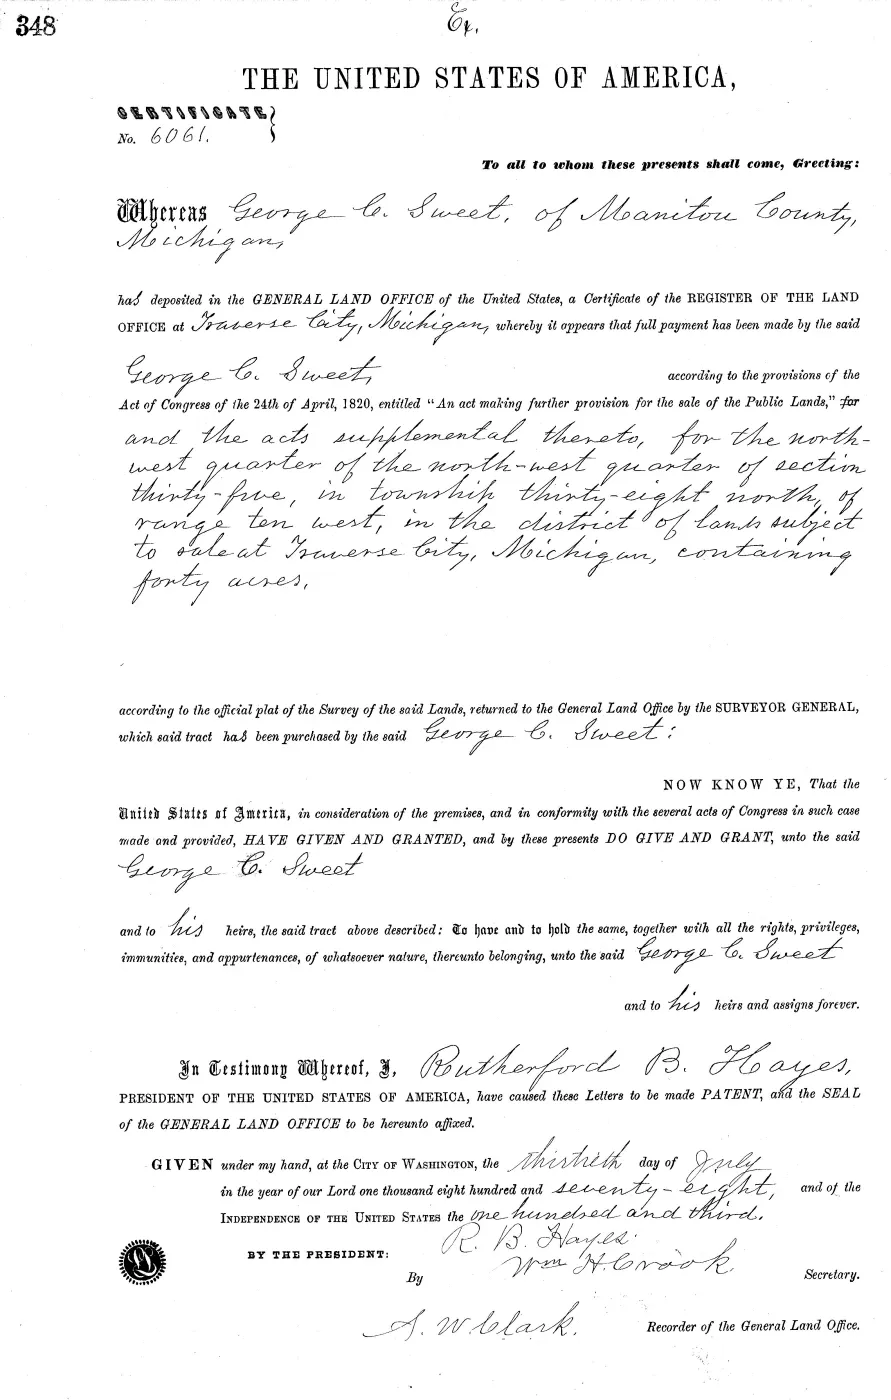 348
Ex.
THE UNITED STATES OF AMERICA,
CERTIFICATE
No. 6061.
To all to whom these presents shall come, Greeting:
Whereas George C. Sweet, of Manitou County,
Michigan,
has deposited in the GENERAL LAND OFFICE of the United States, a Certificate of the REGISTER OF THE LAND
OFFICE at Traverse City, Michigan, whereby it appears that full payment has been made by the said
George C. Sweet, according to the provisions of the
Act of Congress of the 24th of April, 1820, entitled "An act making further provision for the sale of the Public Lands," for
and the acts supplemental thereto, for the north-
west quarter of the north-west quarter of section
thirty-five, in township thirty-eight north, of
range ten west, in the district of lands subject
to sale at Traverse City, Michigan, containing
forty acres.
according to the official plat of the Survey of the said Lands, returned to the General Land Office by the SURVEYOR GENERAL,
which said tract has been purchased by the said George C. Sweet:
NOW KNOW YE, That the
United States of America, in consideration of the premises, and in conformity with the several acts of Congress in such case
made and provided, HAVE GIVEN AND GRANTED, and by these presents DO GIVE AND GRANT, unto the said
George C. Sweet
and to his heirs, the said tract above described: To have and to hold the same, together with all the rights, privileges,
immunities, and appurtenances, of whatsoever nature, thereunto belonging, unto the said George C. Sweet
and to his heirs and assigns forever.
In Testimony Whereof, I, Rutherford B. Hayes,
PRESIDENT OF THE UNITED STATES OF AMERICA, have caused these Letters to be made PATENT, and the SEAL
of the GENERAL LAND OFFICE to be hereunto affixed.
GIVEN under my hand, at the CITY OF WASHINGTON, the thirtieth day of July
in the year of our Lord one thousand eight hundred and seventy-eight, and of the
INDEPENDENCE OF THE UNITED STATES the one hundred and third.
BY THE PRESIDENT: R. B. Hayes.
By Wm H. Crook. Secretary.
S. W. Clark. Recorder of the General Land Office.